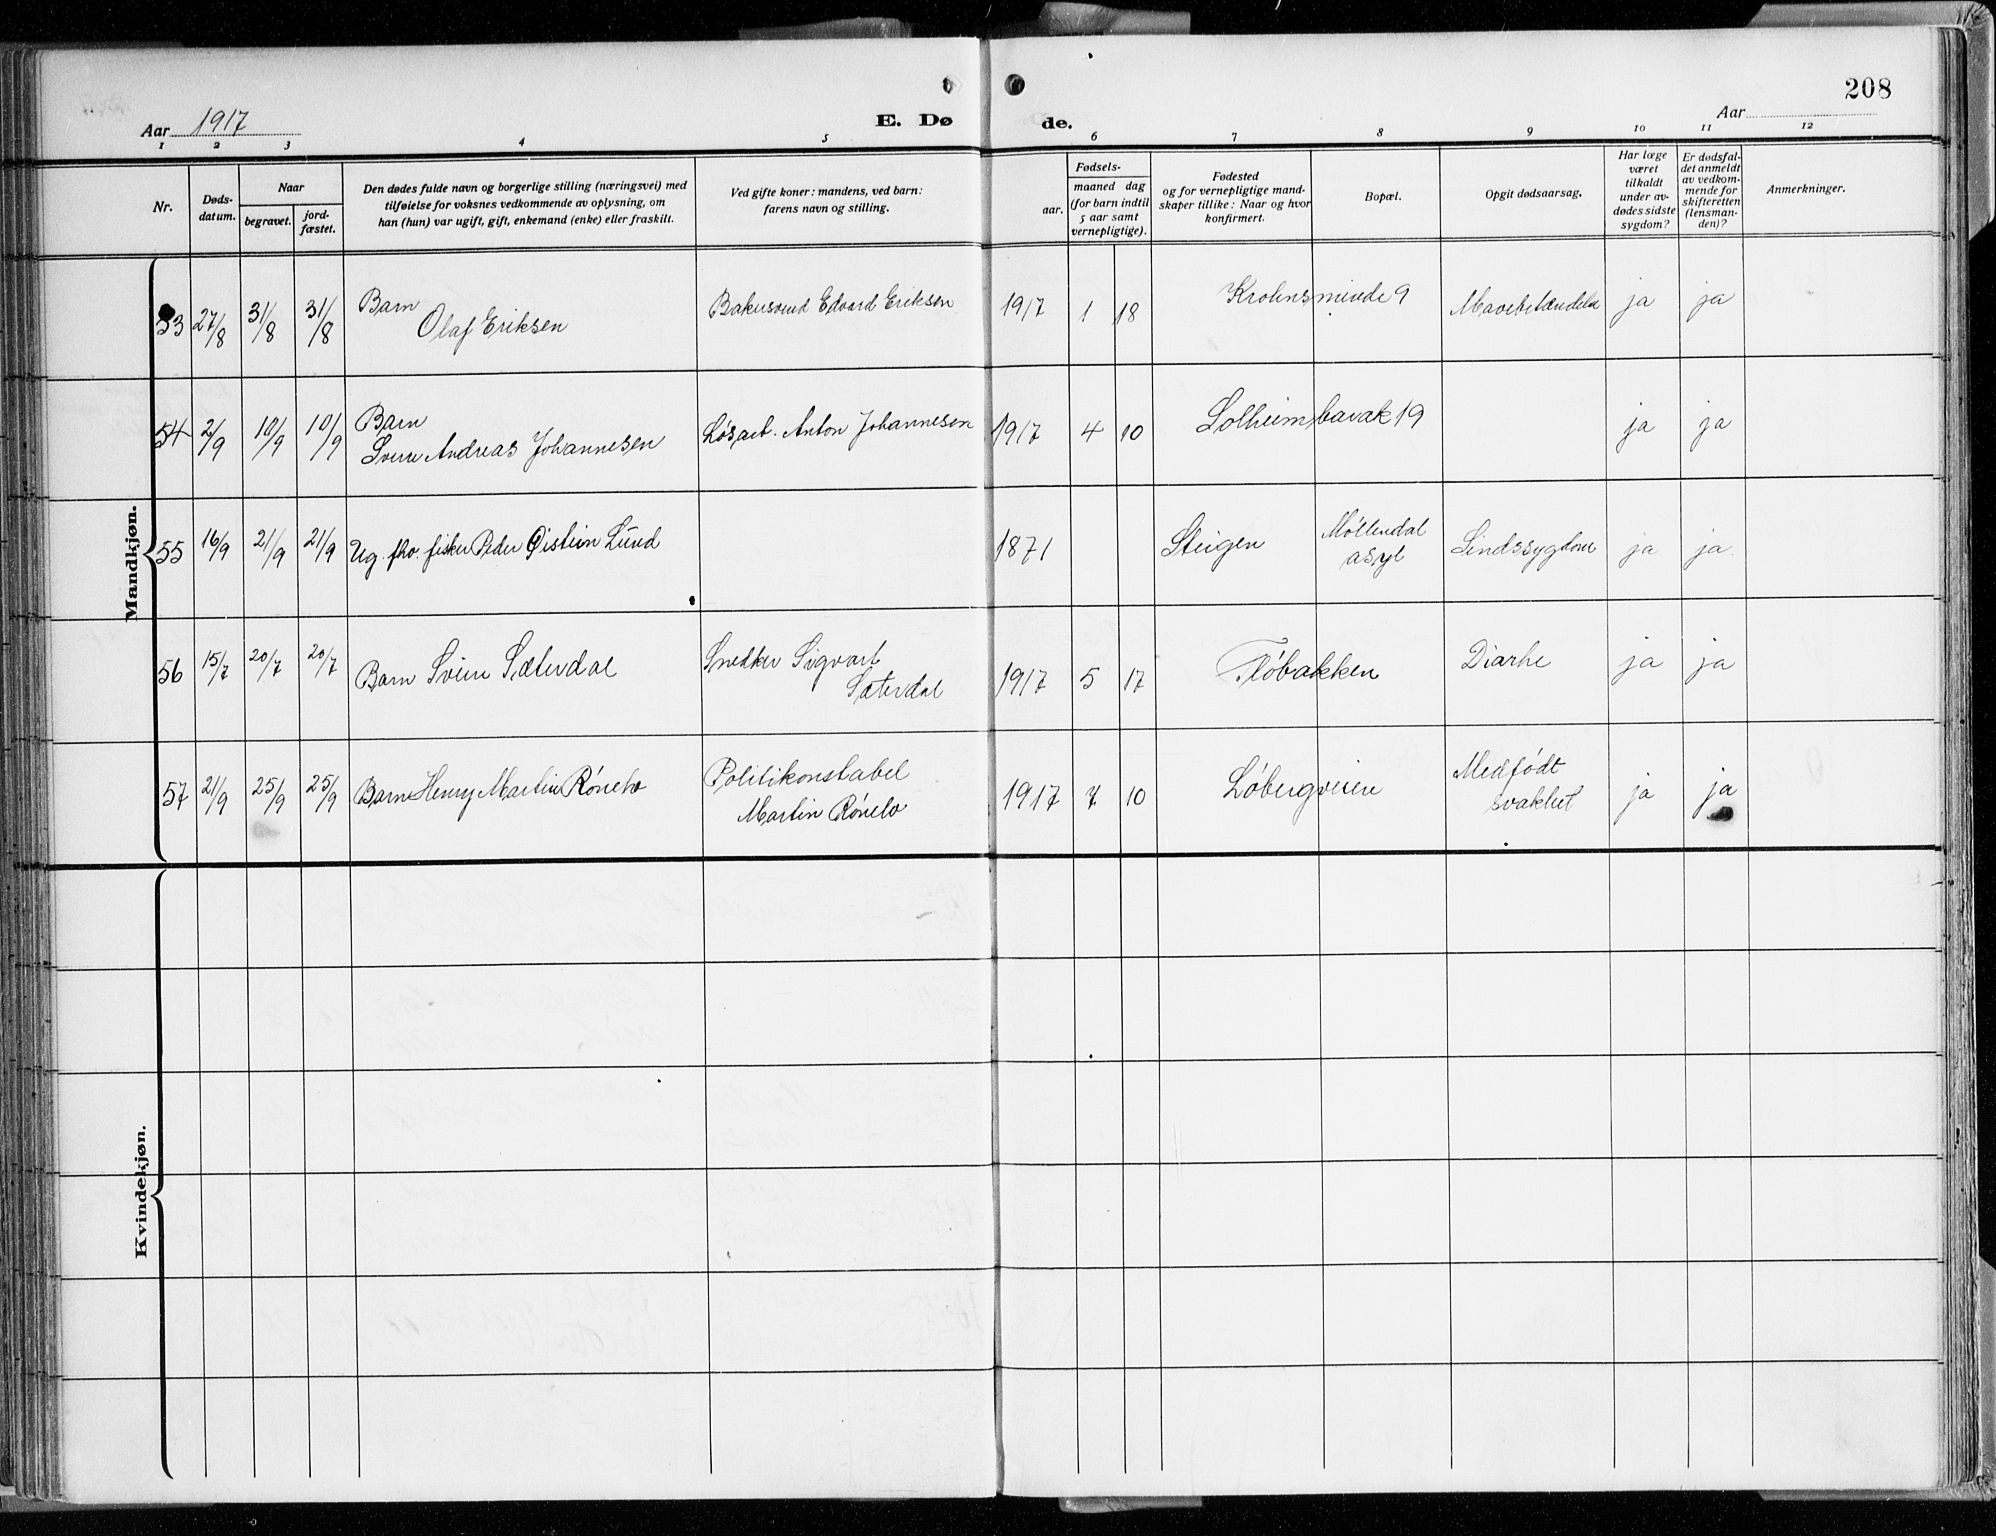 208
Aar 1917
E. Dø de.
Aar
1 2 3 4 5 6 7 8 9 10 11 12
Nr.
Døds-
datum.
Naar
begravet.
jord-
fæstet.
Den dødes fulde navn og borgerlige stilling (næringsvei) med
tilføielse for voksnes vedkommende av oplysning, om
han (hun) var ugift, gift, enkemand (enke) eller fraskilt.
Ved gifte koner: mandens, ved barn:
farens navn og stilling.
Fødsels-
aar.
maaned dag
(for barn indtil
5 aar samt
vernepligtige).
Fødested
og for vernepligtige mand-
skaper tillike: Naar og hvor
konfirmert.
Bopæl.
Opgit dødsaarsag.
Har læge
været
tilkaldt
under av-
dødes sidste
sygdom?
Er dødsfal-
det anmeldt
av vedkom-
mende for
skifteretten
(lensman-
den)?
Anmerkninger.
Mandkjøn.
53 27/8 31/8 31/8 Barn
Olaf Eriksen
Bakersvend Edvard Eriksen
1917 1 18 Krohnsminde 9 Mavebetændelse ja ja
54 2/9 10/9 10/9 Barn
Sverre Andreas Johannesen
Løsarb. Anton Johannesen
1917 4 10 Solheimsbarak 19 ja ja
55 16/9 21/9 21/9 Ug. fhv. fisker Peder Øistein Lund
1871 Steigen Møllendal
asyl
Sindssygdom ja ja
56 15/7 20/7 20/7 Barn Sverre Sæterdal
Snedker Sigvart
Sæterdal
1917 5 17 Fløbakken Diarhe ja ja
57 21/9 25/9 25/9 Barn Henry Martin Rónelv
Politikonstabel
Martin Rónelv
1917 7 10 Løbergveien Medfødt
svakhet
ja ja
Kvindekjøn.